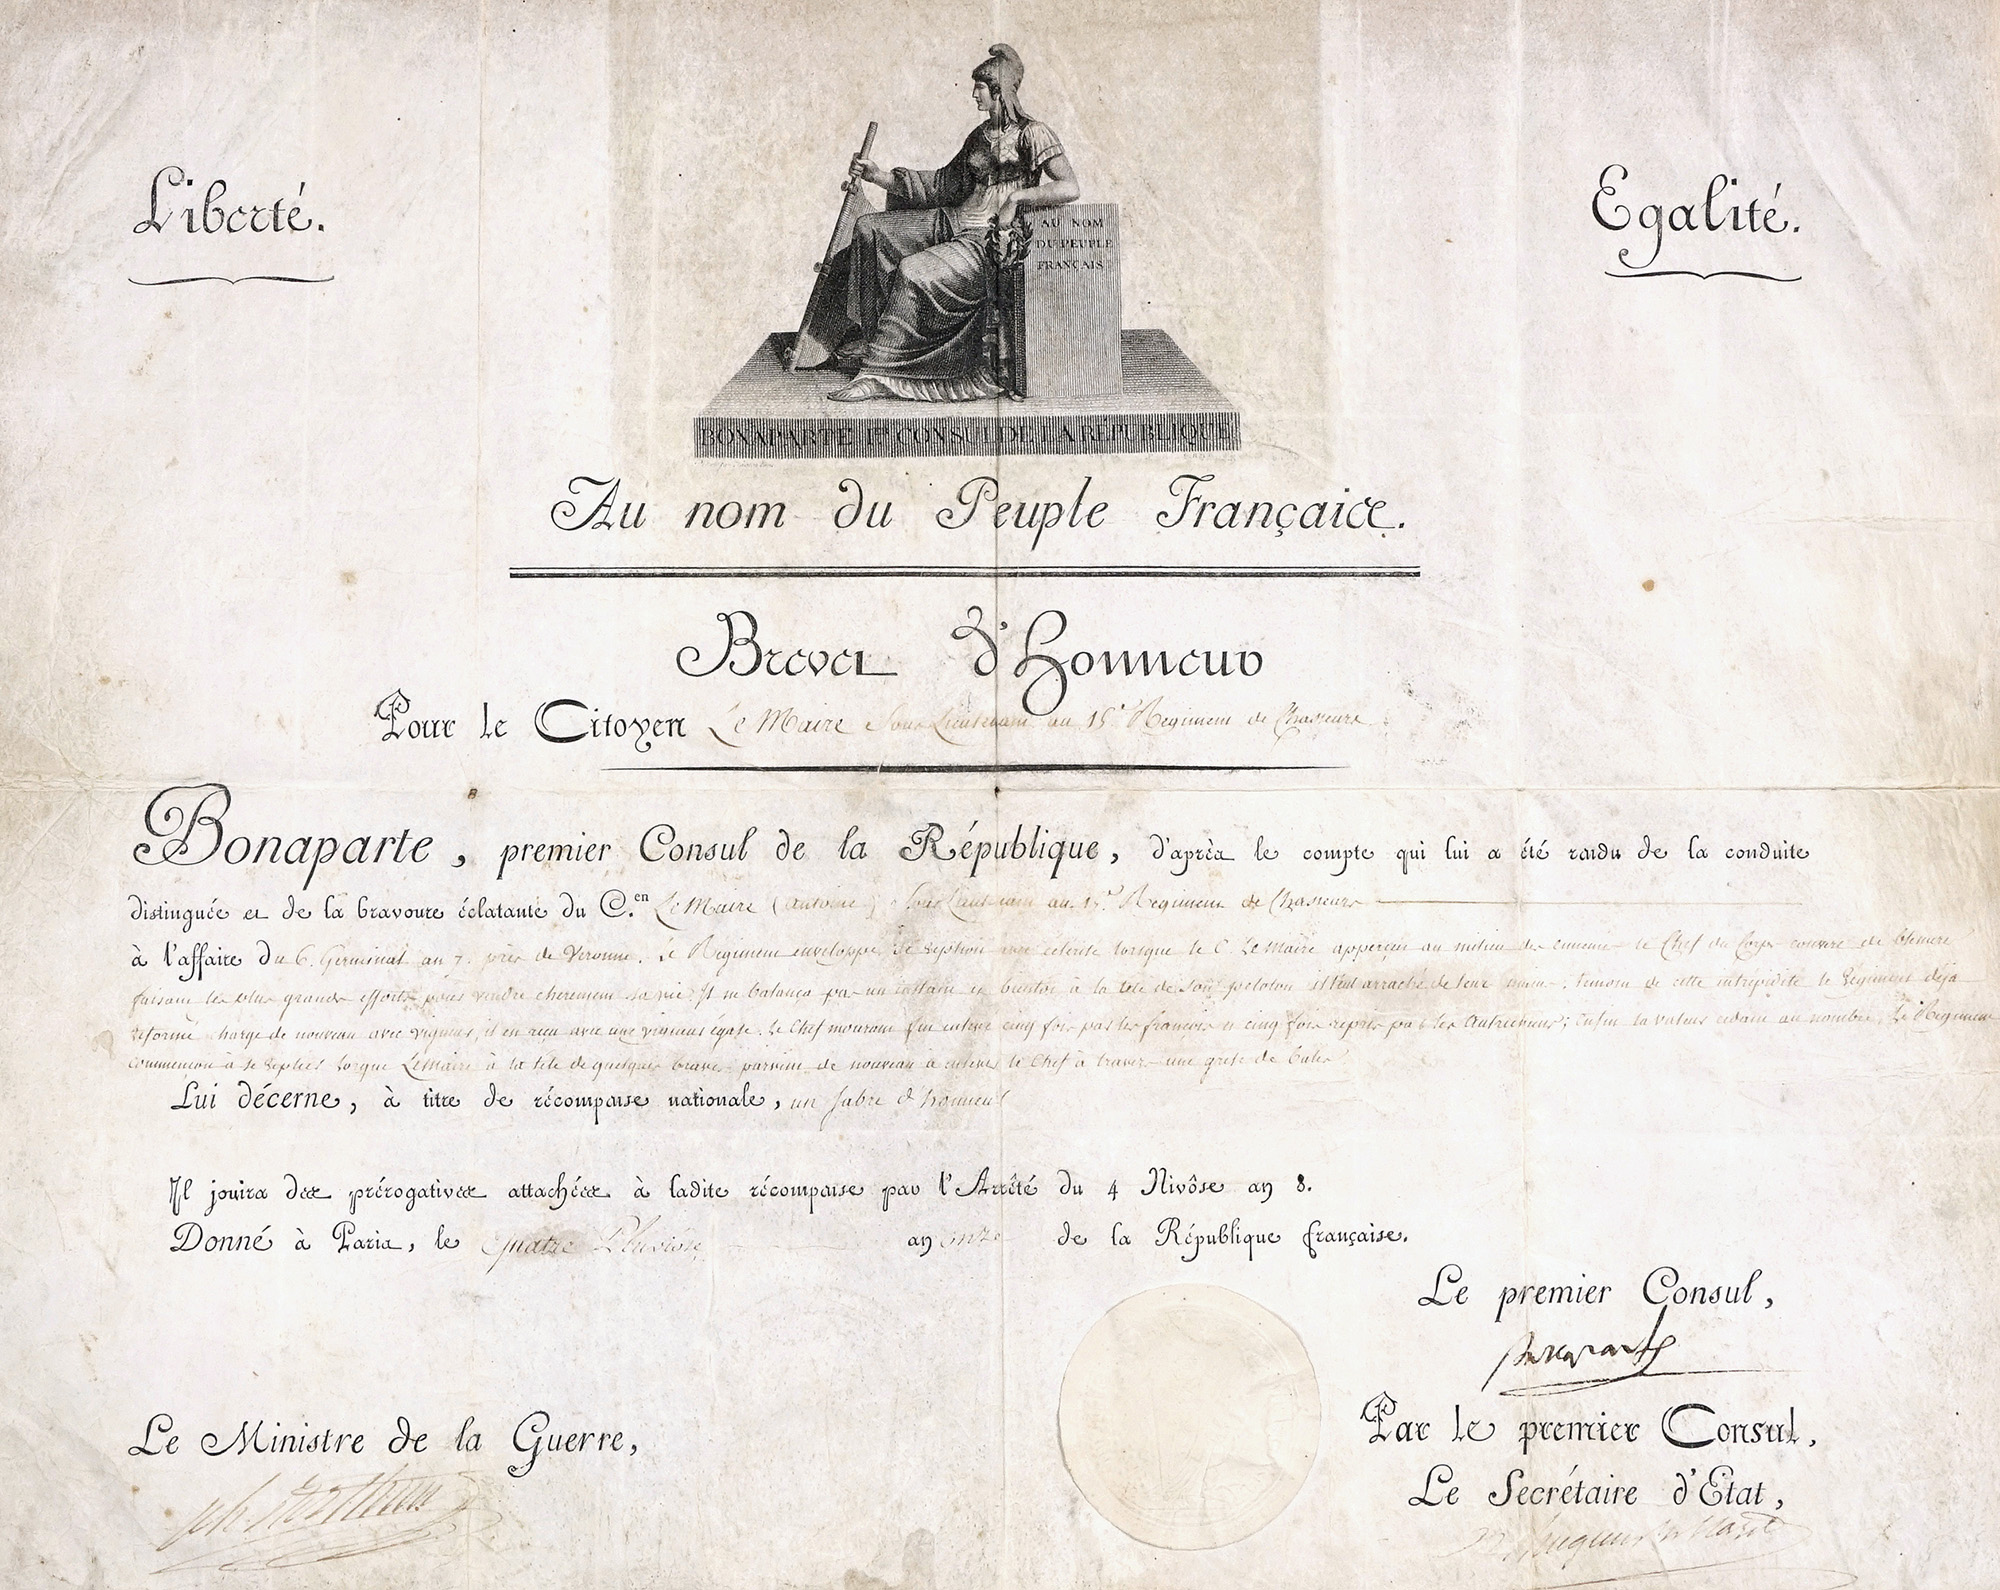 Liberté.
Egalité.
AU NOM
DU PEUPLE
FRANÇAIS
BONAPARTE Ier CONSUL DE LA REPUBLIQUE
Au nom du Peuple Français.
Brevet d'Honneur
Pour le Citoyen Le Maire Sous Lieutenant au 15e Regiment de Chasseurs
Bonaparte, premier Consul de la République, d'après le compte qui lui a été rendu de la conduite
distinguée et de la bravoure éclatante du C.en Le Maire (Antoine) Sous Lieutenant au 15e Regiment de Chasseurs
à l'affaire du 6. Germinal an 7. près de Veronne. Le Regiment enveloppé se replioit avec célérité lorsque le C. Le Maire apperçut au milieu des ennemis le Chef du Corps couvert de blessures
faisant les plus grands efforts pour vendre cherement sa vie. Il ne balança pas un instant et bientôt à la tête de son peloton il l'eut arraché de leurs mains. temoin de cette intrépidité le Regiment déjà
reformé charge de nouveau avec vigueur, il est reçu avec une vigueur égale. Le Chef mourant fut enlevé cinq fois par les françois et cinq fois repris par les Autrichiens; enfin la valeur cedant au nombre, Le Regiment
commencoit à se replier lorsque Lemaire à la tête de quelques braves parvint de nouveau à enlever le Chef à travers une grele de balles
Lui décerne, à titre de récompense nationale, un sabre d'honneur
Il jouira des prérogatives attachées à ladite récompense par l'Arrêté du 4 Nivôse an 8.
Donné à Paris, le quatre Pluviôse an onze de la République française.
Le premier Consul,
Bonaparte
Le Ministre de la Guerre,
Par le premier Consul,
Le Secrétaire d'Etat,
Hugues B. Maret